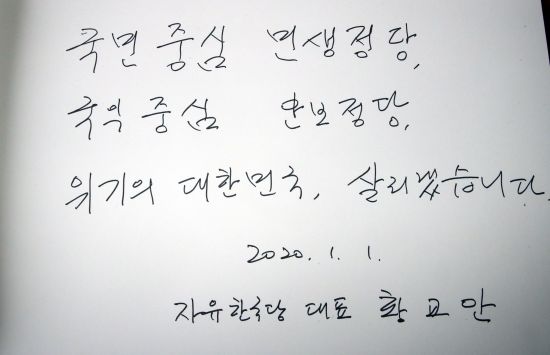 국민 중심 민생정당,
국익 중심 안보정당,
위기의 대한민국, 살리겠습니다.
2020. 1. 1.
자유한국당 대표 황교안